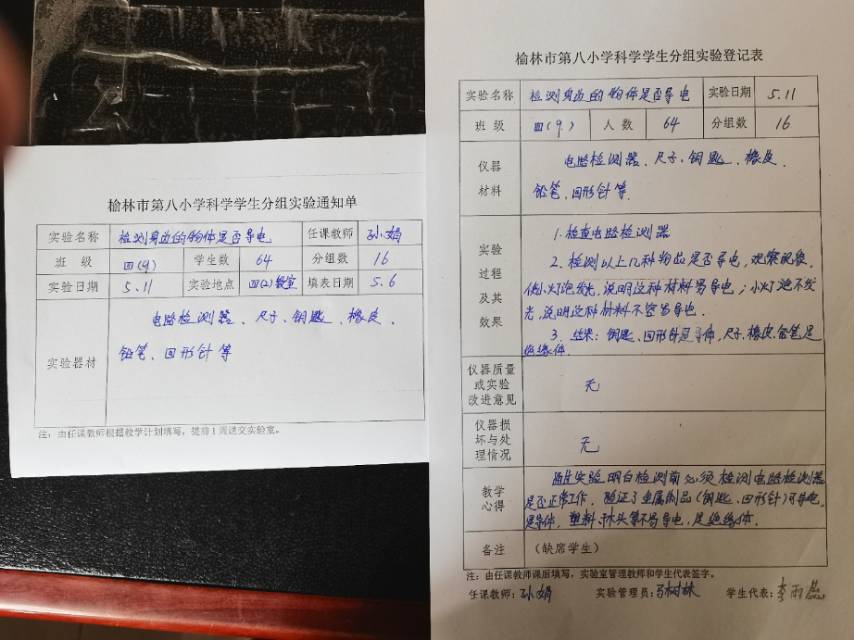 榆林市第八小学科学学生分组实验通知单
实验名称 检测身边的物体是否导电 任课教师 孙娟
班 级 四(9) 学生数 64 分组数 16
实验日期 5.11 实验地点 四(2)教室 填表日期 5.6
实验器材
电路检测器、尺子、钥匙、橡皮、
铅笔、回形针等
注：由任课教师根据教学计划填写，提前1周送交实验室。
榆林市第八小学科学学生分组实验登记表
实验名称 检测身边的物体是否导电 实验日期 5.11
班 级 四(9) 人 数 64 分组数 16
仪器材料
电路检测器、尺子、钥匙、橡皮、
铅笔、回形针等.
实验过程及其效果
1.检查电路检测器
2.检测以上几种物品是否导电，观察现象，
使小灯泡发光，说明这种材料易导电；小灯泡不发
光，说明这种材料不容易导电.
3.结果：钥匙、回形针是导体，尺子、橡皮、铅笔是
绝缘体.
仪器质量或实验改进意见
无
仪器损坏与处理情况
无
教学心得
通过实验明白检测前必须检测电路检测器
是否正常工作，验证了金属制品(钥匙、回形针)可导电，
是导体，塑料、木头等不易导电，是绝缘体.
备注 （缺席学生）
注：由任课教师课后填写，实验室管理教师和学生代表签字。
任课教师：孙娟 实验管理员：马树林 学生代表：李雨